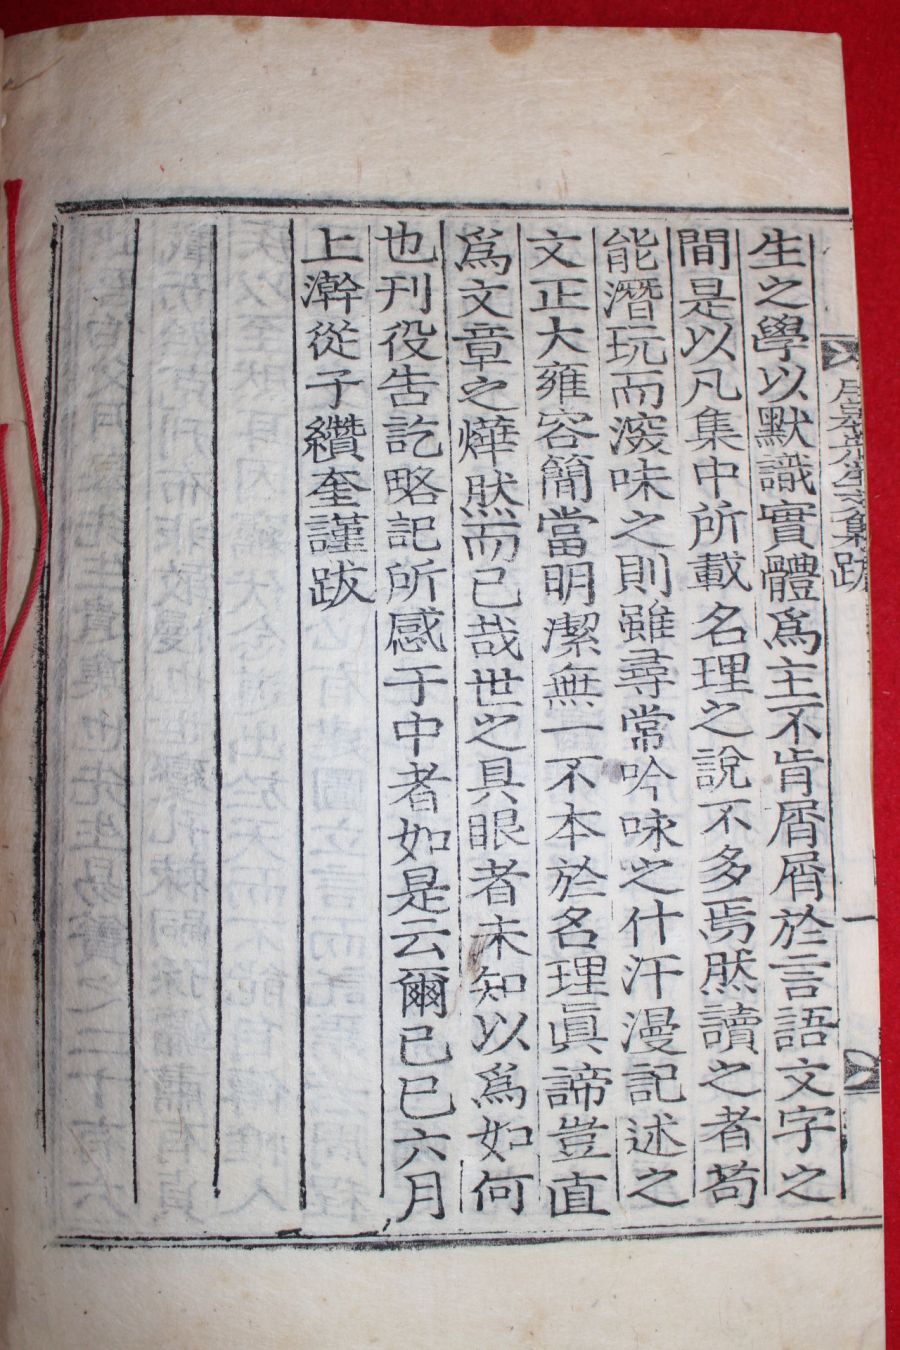 生之學以默識實體爲主不肯屑屑於言語文字之
間是以凡集中所載名理之說不多焉然讀之者苟
能潛玩而深味之則雖尋常吟咏之什汗漫記述之
文正大雍容簡當明潔無一不本於名理眞諦豈直
爲文章之燁然而已哉世之具眼者未知以爲如何
也刊役告訖略記所感于中者如是云爾己巳六月
上澣從子纘奎謹跋
先生文集跋
一